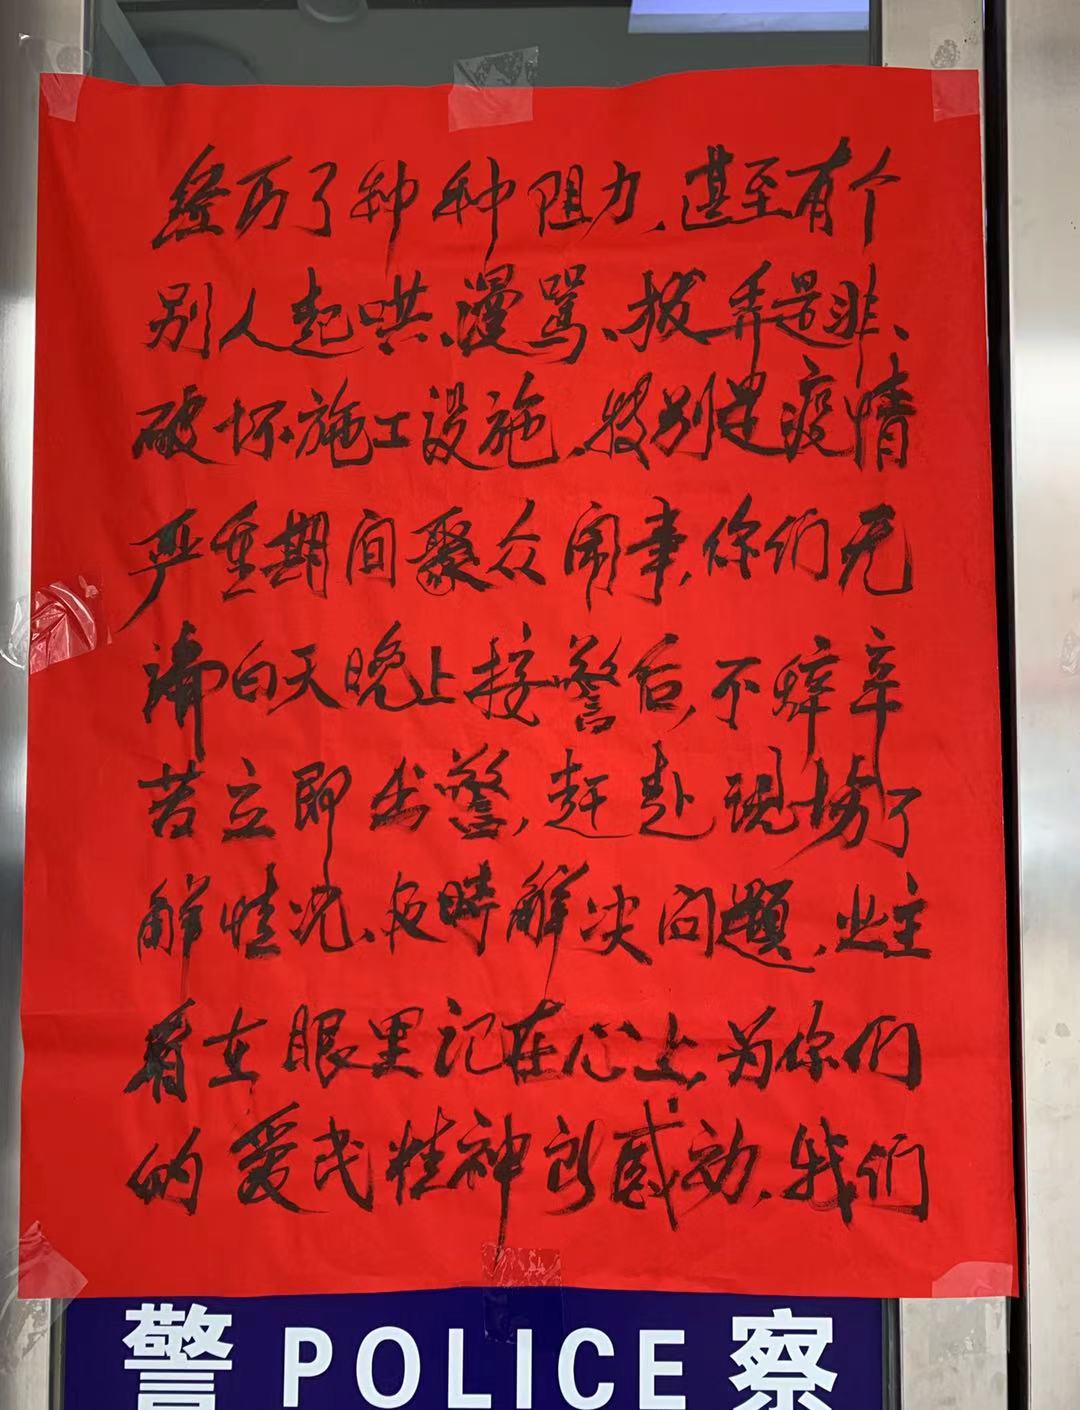 经历了种种阻力,甚至有个
别人起哄、漫骂、拨弄是非、
破坏施工设施,特别是疫情
严重期间聚众闹事,你们无
论白天晚上接警后,不辞辛
苦立即出警,赶赴现场了
解情况、及时解决问题,业主
看在眼里记在心上,为你们
的爱民精神所感动,我们
警 POLICE 察